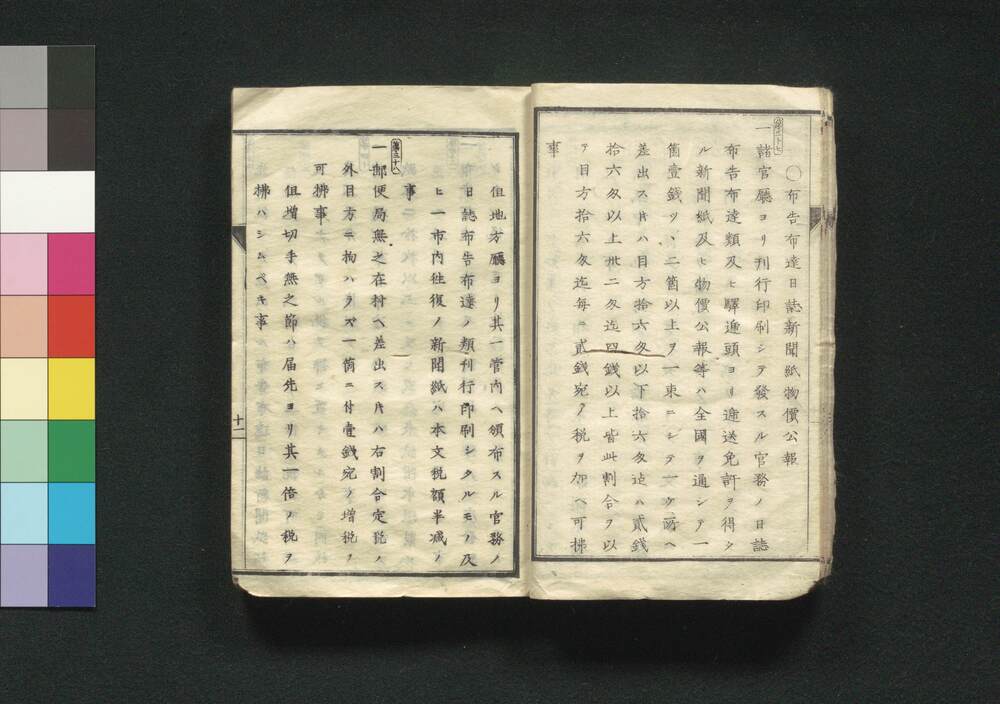 〇布告布達日誌新聞紙物價公報
第三十七
一諸官廳ヨリ刊行印刷シテ發スル官務ノ日誌
布告布達類及ヒ驛逓頭ヨリ逓送免許ヲ得タ
ル新聞紙及ヒ物價公報等ハ全國ヲ通シテ一
箇壹錢ツヽ二箇以上ヲ一束ニシテ一ケ所ヘ
差出ス片ハ目方拾六匁以下拾六匁迠ハ貳錢
拾六匁以上卅二匁迠四錢以上皆此割合ヲ以
テ目方拾六匁迠毎ニ貳錢宛ノ税ヲ加ヘ可拂
事
但地方廳ヨリ其一管内ヘ頒布スル官務ノ
日誌布告布達ノ類刊行印刷シタルモノ及
ヒ一市内徃復ノ新聞紙ハ本文税額半减ノ
事
第三十八
一郵便局無之在村ヘ差出ス片ハ右割合定税ノ
外目方ニ拘ハラズ一箇ニ付壹錢宛ノ増税ヲ
可拂事
但増切手無之節ハ届先ヨリ其一倍ノ税ヲ
拂ハシムベキ事
十一